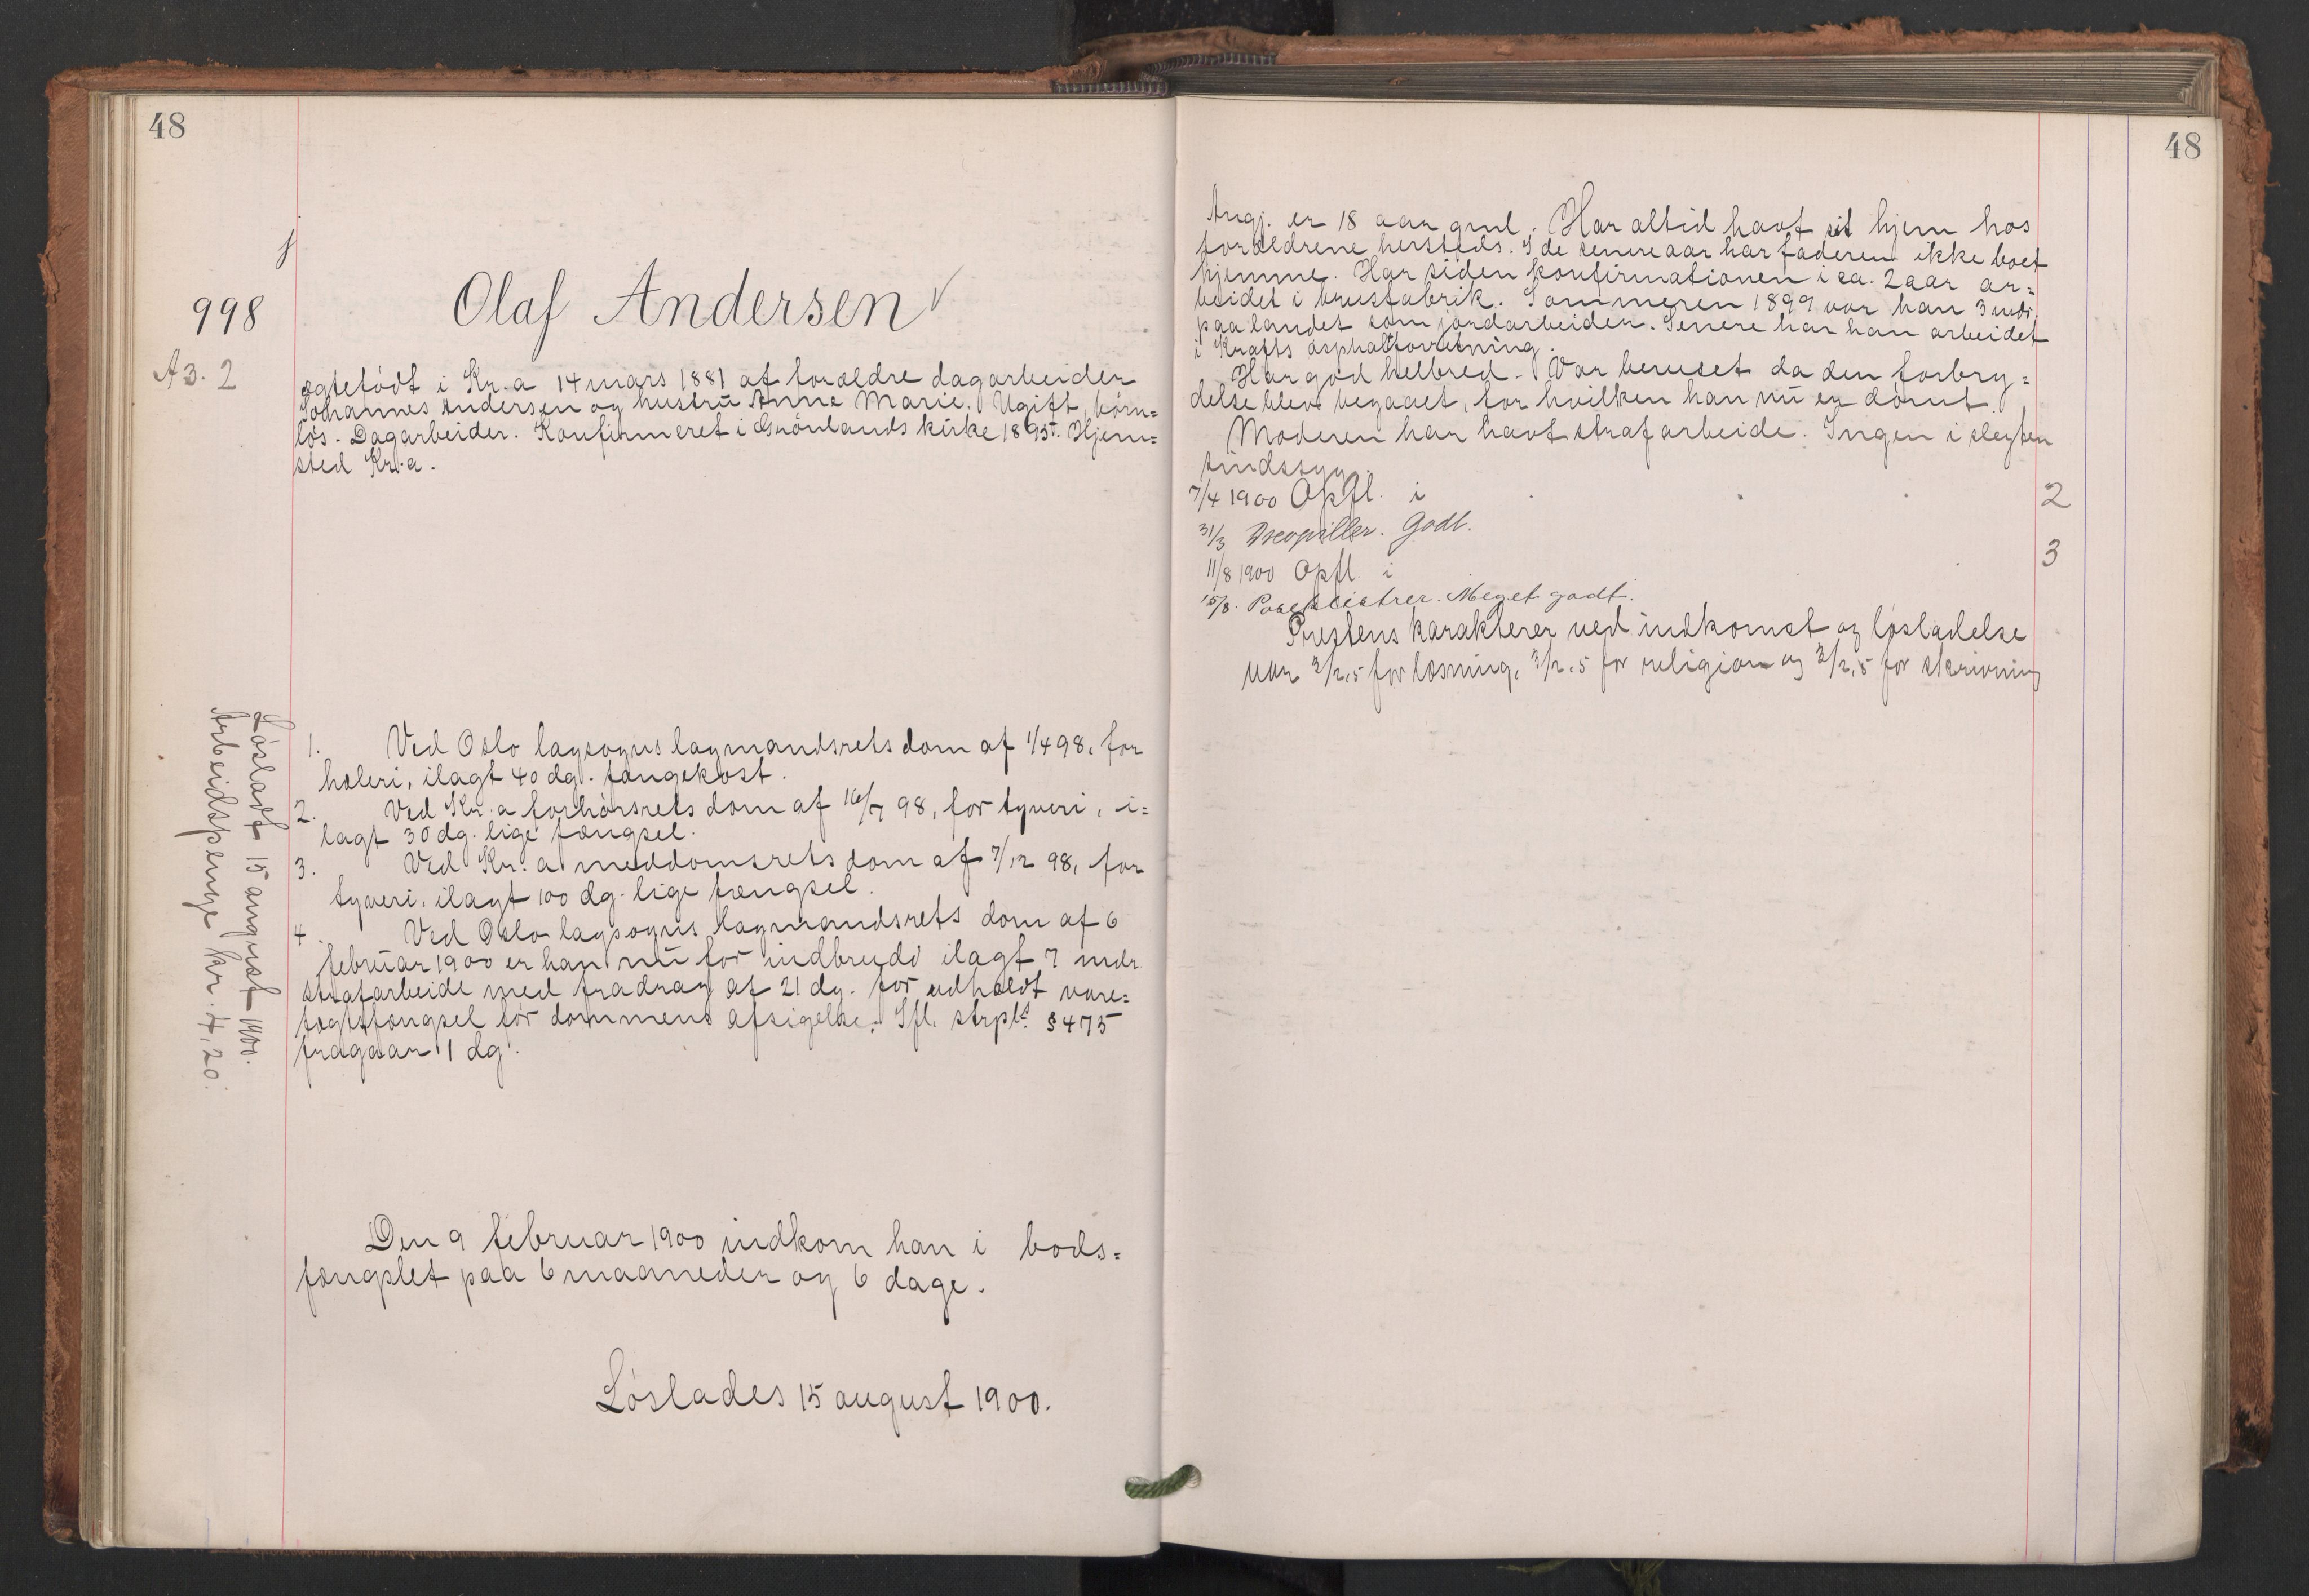 48
998
Olaf Andersen
A 3. 2
ægtefödt i Kr.a 14 mars 1881 af forældre dagarbeider
Johannes Andersen og hustru Anne Marie. Ugift, börn=
lös. Dagarbeider. Konfirmeret i Grönlands kirke 1895. Hjem=
sted Kr.a.
1. Ved Oslo lagsogns lagmandsrets dom af 1/4 98, for
hæleri, ilagt 40 dg. fangekost.
2. Ved Kr.a forhörsrets dom af 16/7 98, for tyveri, i=
lagt 30 dg. lige fængsel.
3. Ved Kr.a meddomsrets dom af 7/12 98, for
tyveri, ilagt 100 dg. lige fængsel.
4. Ved Oslo lagsogns lagmandsrets dom af 6
februar 1900 er han nu for indbrudd ilagt 7 mdr
strafarbeide med fradrag af 21 dg. for udholdt vare=
tægtsfængsel för dommens afsigelse. Ifl. strpl. § 475
fragaar 1 dg.
Lösladt 15 august 1900.
Arbeidspenge kr. 4,20.
Den 9 februar 1900 indkom han i bods=
fængslet paa 6 maaneder og 6 dage.
Löslades 15 august 1900.
48
Angj. er 18 aar gml. Har altid havt sit hjem hos
forældrene hersteds. I de senere aar har faderen ikke boet
hjemme. Har siden konfirmationen i ca. 2 aar ar=
beidet i brusfabrik. Sommeren 1899 var han 3 mdr.
paa landet som jordarbeider. Senere har han arbeidet
i Krafts asphaltforretning.
Har god helbred. Var beruset da den forbry=
delse blev begaaet, for hvilken han nu er dömt.
Moderen har havt strafarbeide. Ingen i slegten
sindssyg.
7/4 1900 Opfl. i 2
31/3 Godt.
11/8 1900 Opfl. i 3
15/8. Meget godt.
Prestens karakterer ved indkomst og lösladelse
var 3/2,5 for læsning, 3/2,5 for religion og 3/2,5 for skrivning